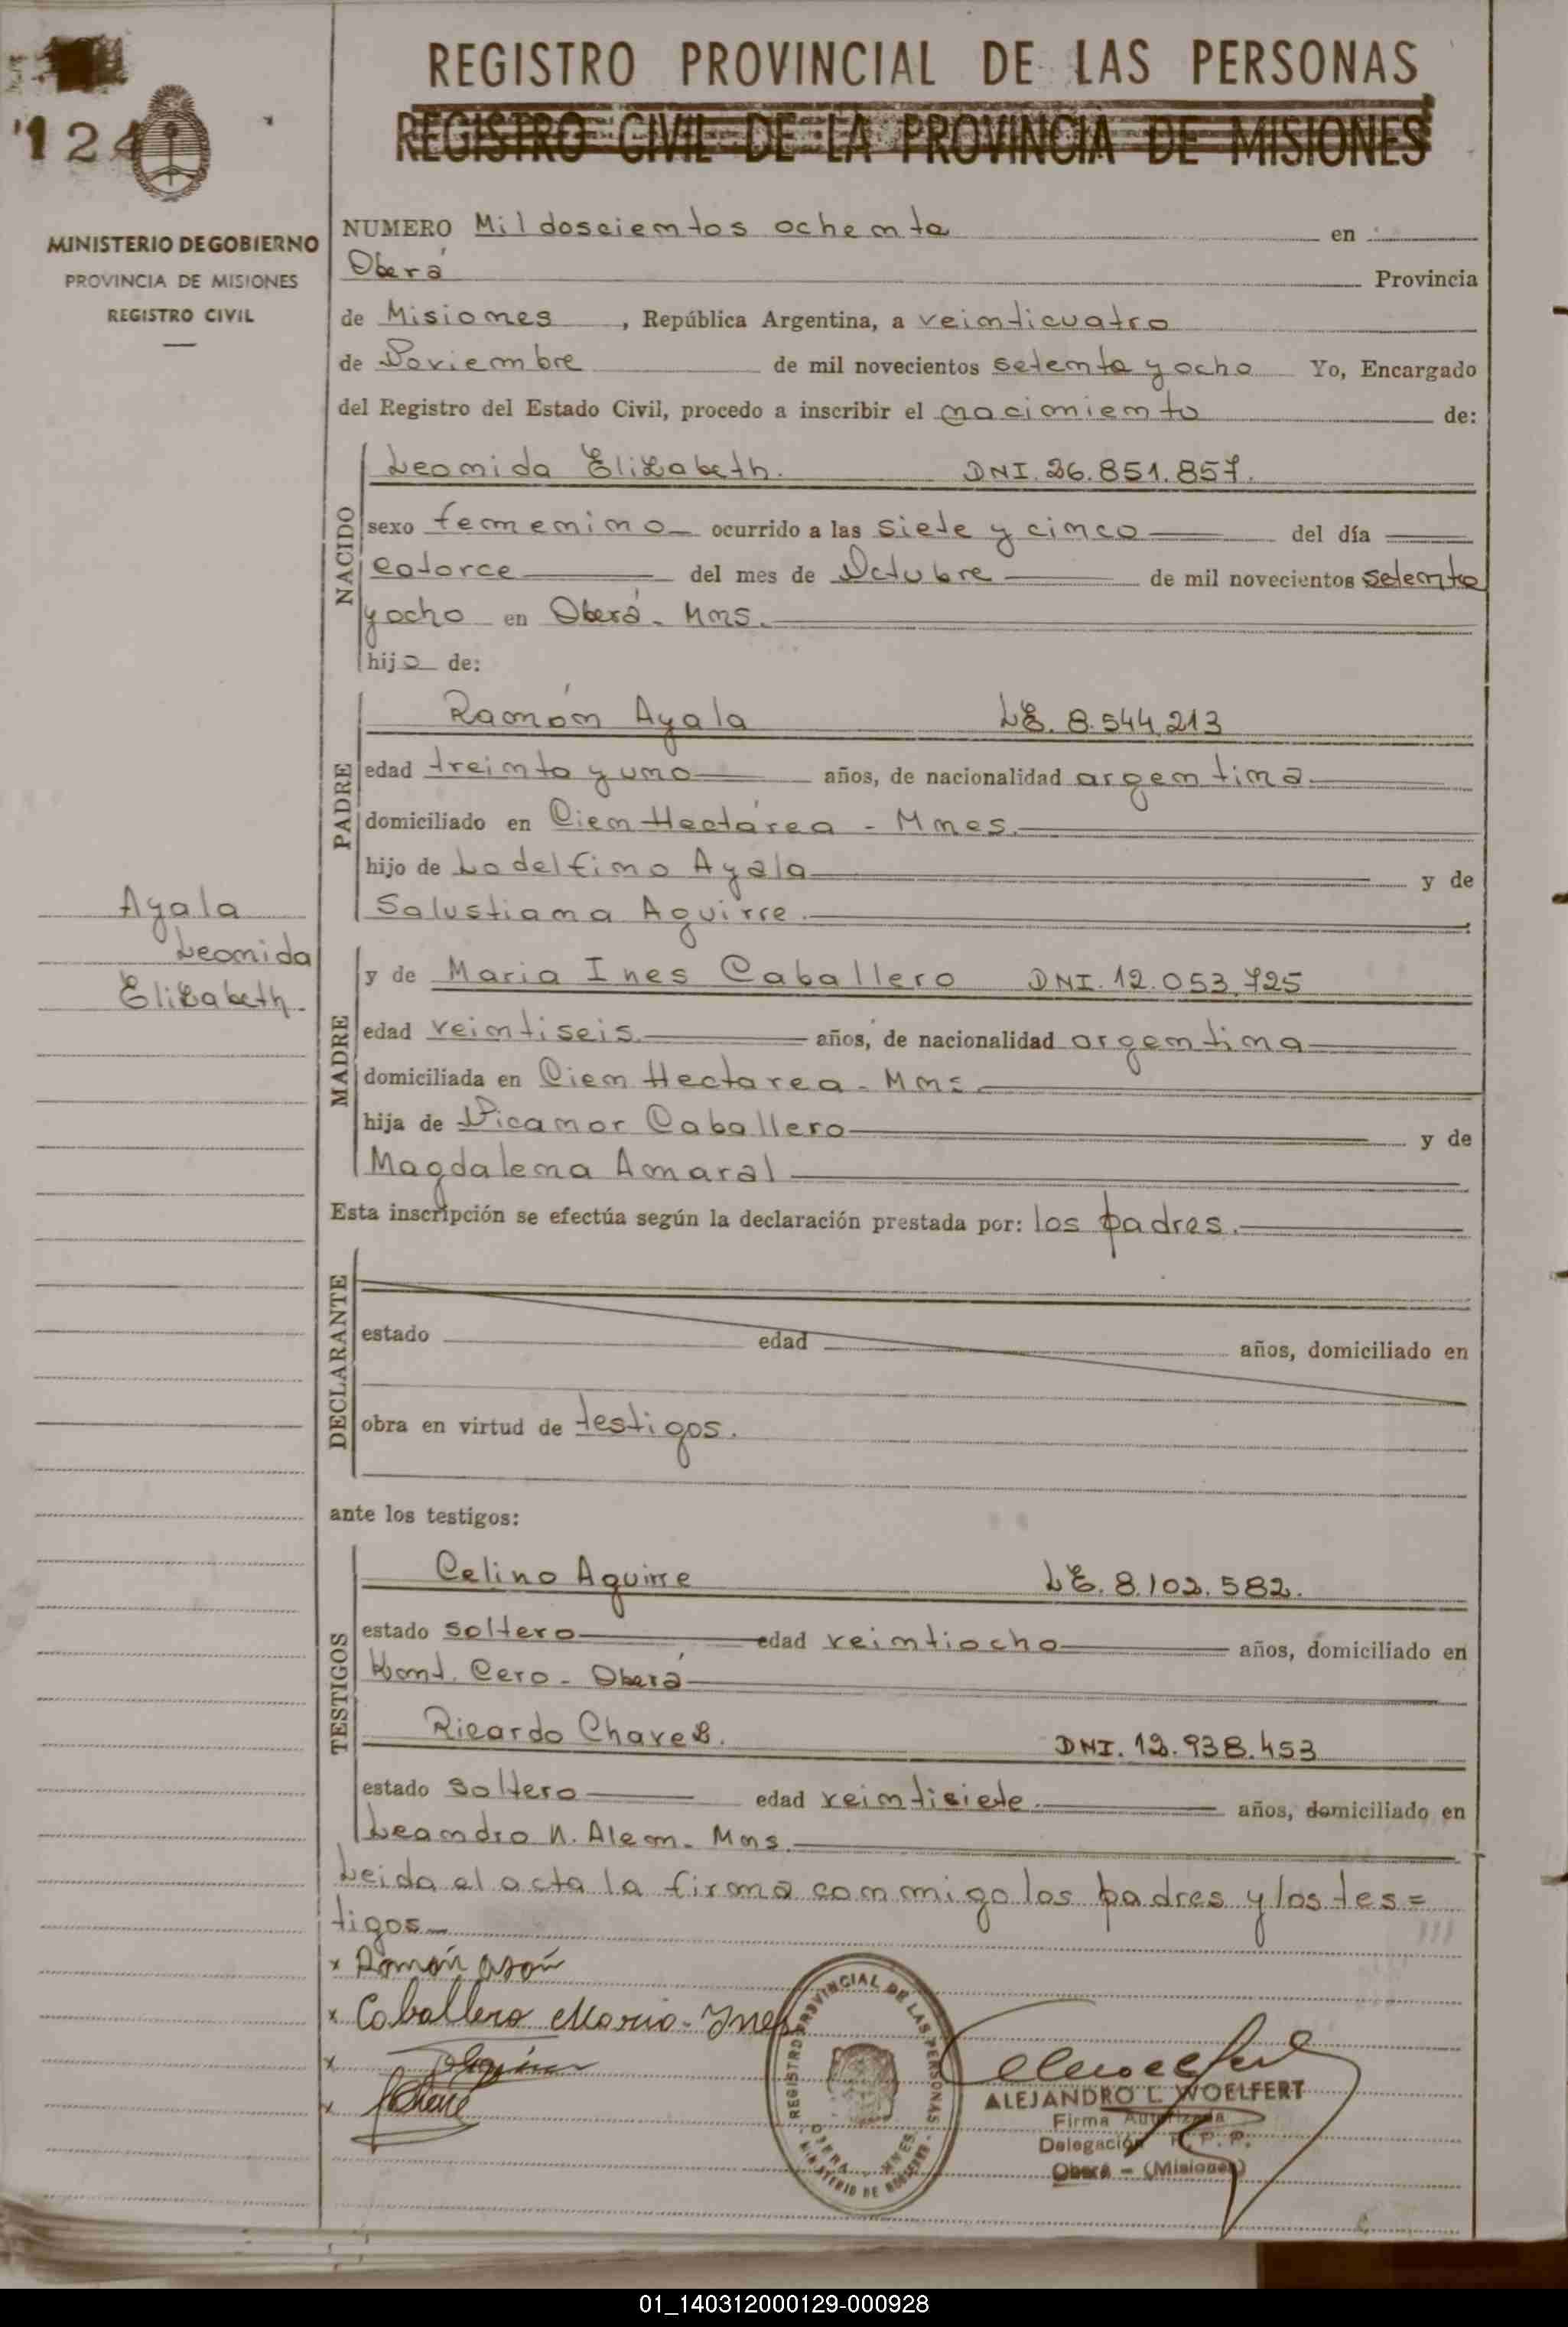 REGISTRO PROVINCIAL DE LAS PERSONAS
REGISTRO CIVIL DE LA PROVINCIA DE MISIONES
124
MINISTERIO DE GOBIERNO
PROVINCIA DE MISIONES
REGISTRO CIVIL
NUMERO Mil doscientos ochenta en
Oberá Provincia
de Misiones, República Argentina, a veinticuatro
de Noviembre de mil novecientos setenta y ocho Yo, Encargado
del Registro del Estado Civil, procedo a inscribir el nacimiento de:
NACIDO
Leonida Elizabeth. DNI. 26.851.857.
sexo femenino ocurrido a las siete y cinco del día
catorce del mes de Octubre de mil novecientos setenta
y ocho en Oberá - Mns.
hija de:
PADRE
Ramón Ayala LE. 8.544.213
edad treinta y uno años, de nacionalidad argentina
domiciliado en Cien Hectárea - Mnes.
hijo de Ladelfino Ayala y de
Salustiana Aguirre.
Ayala
Leonida
Elizabeth.
MADRE
y de Maria Ines Caballero DNI. 12.053.725
edad veintiseis. años, de nacionalidad argentina
domiciliada en Cien Hectarea - Mns
hija de Nicanor Caballero y de
Magdalena Amaral
Esta inscripción se efectúa según la declaración prestada por: los padres.
DECLARANTE
estado edad años, domiciliado en
obra en virtud de testigos.
ante los testigos:
TESTIGOS
Celino Aguirre LE. 8.102.582.
estado soltero edad veintiocho años, domiciliado en
Cero - Oberá
Ricardo Chavez. DNI. 12.938.453
estado soltero edad veintisiete años, domiciliado en
Leandro N. Alem - Mns.
Leida el acta la firma conmigo los padres y los tes=
tigos
x Ramón
x Caballero Maria-Ines
x
x
REGISTRO PROVINCIAL DE LAS PERSONAS
OBERA - MNES
MINISTERIO DE GOBIERNO
ALEJANDRO L. WOELFERT
Firma Autorizada
Delegación R. P. P.
Oberá - (Misiones)
01_140312000129-000928